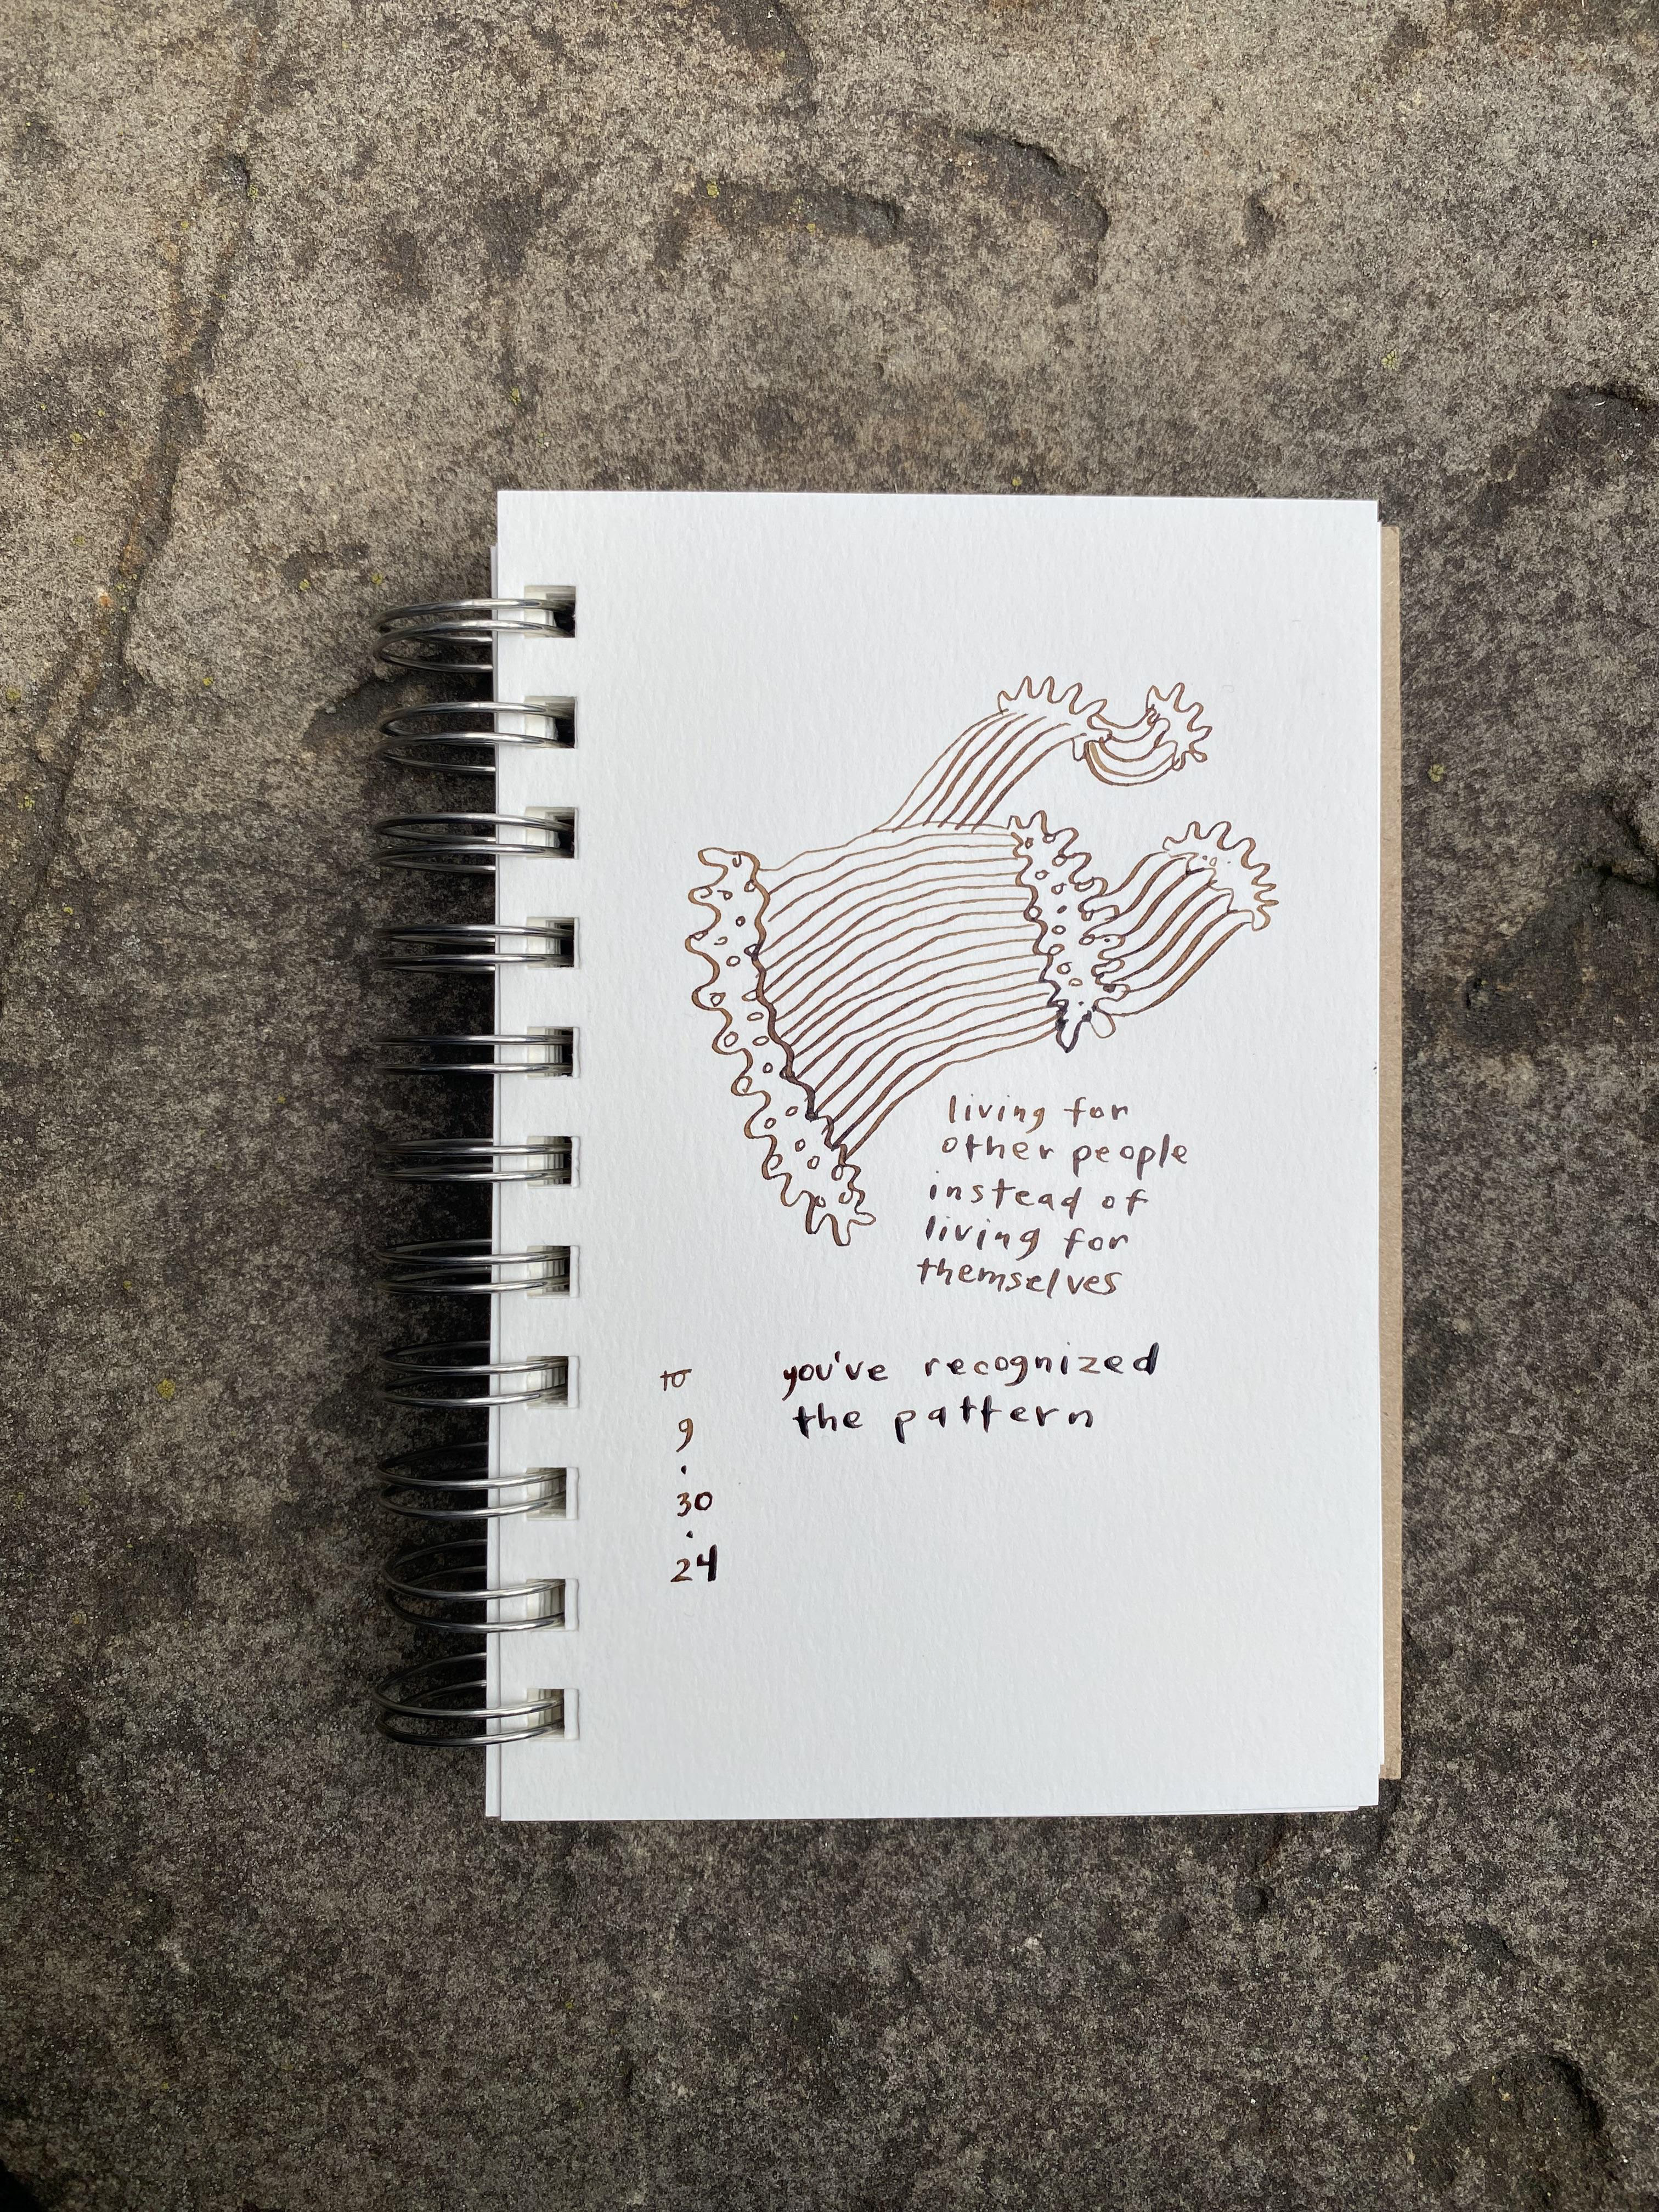 living for
other people
instead of
living for
themselves
you've recognized
the pattern
10
9
.
30
.
24